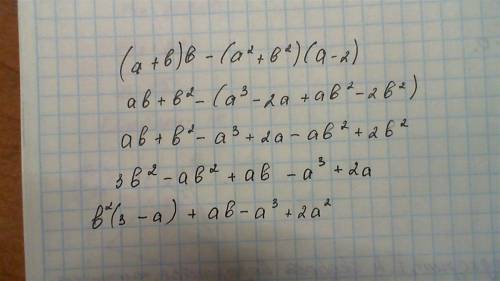 (a+b)b - (a²+b²)(a-2)
ab+b²-(a³-2a+ab²-2b²)
ab+b²-a³+2a-ab²+2b²
3b²-ab²+ab-a³+2a
b²(3-a)+ab-a³+2a²